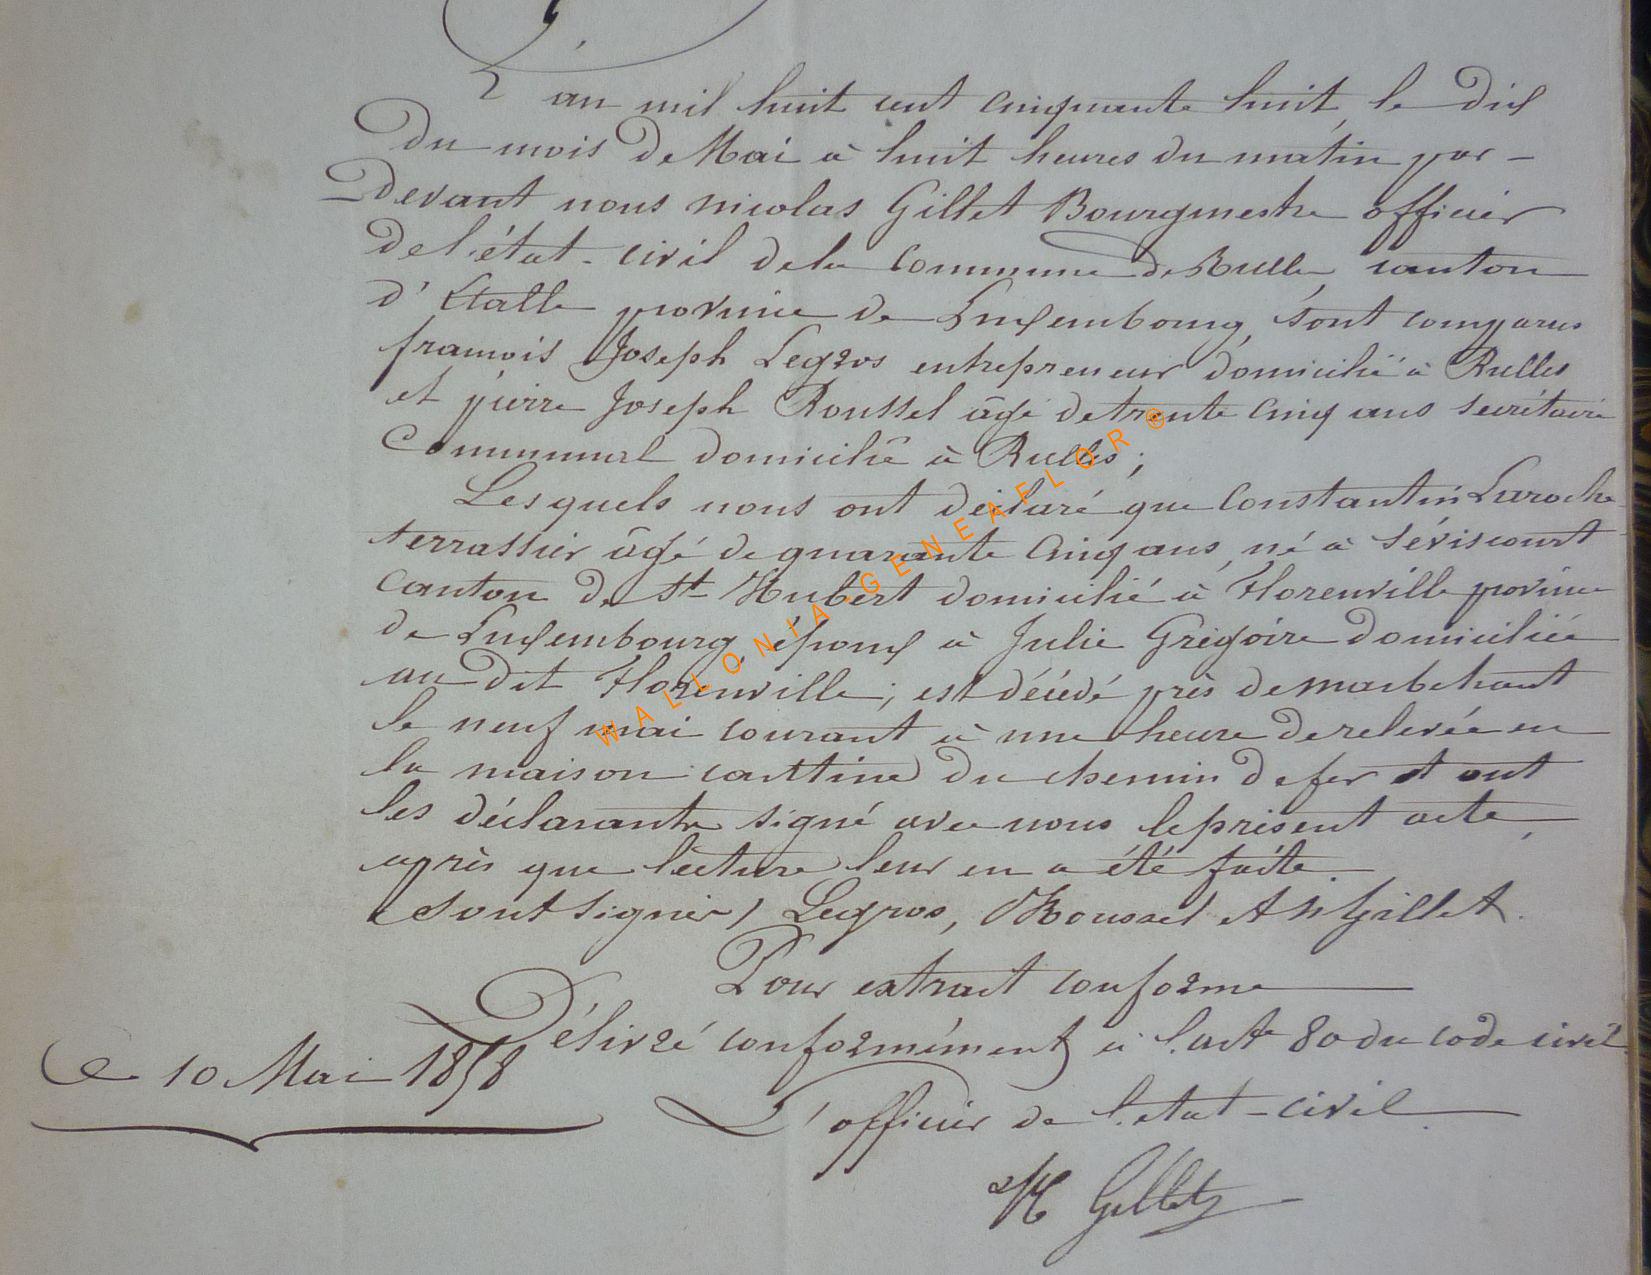 L'an mil huit cent cinquante huit, le dix
du mois de Mai à huit heures du matin par-
devant nous nicolas Gillet Bourgmestre officier
de l'état-civil de la commune de Rulle, canton
d'Etalle province de Luxembourg, sont comparus
francois Joseph Legros entrepreneur domicilié à Rulles
et pierre Joseph Roussel âgé de trente cinq ans secrétaire
Communal domicilié à Rulles;
Lesquels nous ont déclaré que Constantin Laroche
terrassier âgé de quarante cinq ans, né à Séviscourt
canton de St Hubert domicilié à Florenville province
de Luxembourg, époux à Julie Grégoire domiciliée
au dit Florenville; est décédé près de marbehant
le neuf mai courant à une heure de relevée en
la maison canttine du chemin de fer et ont
les déclarants signé avec nous le présent acte,
après que lecture leur en a été faite
(Sont signés) Legros, Roussel et N Gillet.
Pour extrait conforme
Délivré conformément à l'art 80 du code civil.
Le 10 Mai 1858
L'officier de l'etat-civil
N Gillet
WALLONIA-GENEAFLOR®